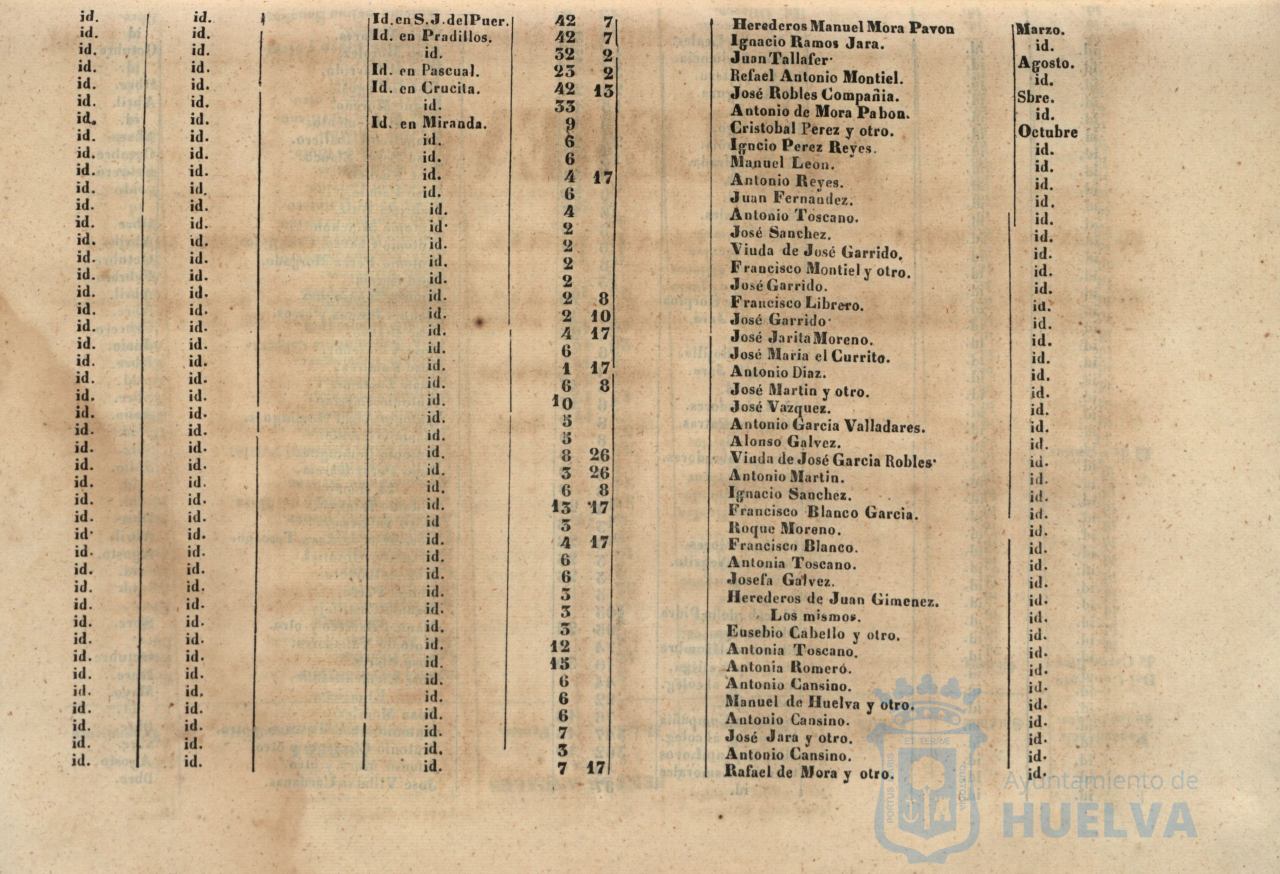 id. id. Id. en S. J. del Puer. 42 7 Herederos Manuel Mora Pavon Marzo.
id. id. Id. en Pradillos. 42 7 Ignacio Ramos Jara. id.
id. id. id. 32 2 Juan Tallafer. Agosto.
id. id. Id. en Pascual. 23 2 Refael Antonio Montiel. id.
id. id. Id. en Crucita. 42 13 José Robles Compañia. Sbre.
id. id. id. 33 Antonio de Mora Pabon. id.
id. id. Id. en Miranda. 9 Cristobal Perez y otro. Octubre
id. id. id. 6 Igncio Perez Reyes. id.
id. id. id. 6 Manuel Leon. id.
id. id. id. 4 17 Antonio Reyes. id.
id. id. id. 6 Juan Fernandez. id.
id. id. id. 4 Antonio Toscano. id.
id. id. id. 2 José Sanchez. id.
id. id. id. 2 Viuda de José Garrido. id.
id. id. id. 2 Francisco Montiel y otro. id.
id. id. id. 2 José Garrido. id.
id. id. id. 2 8 Francisco Librero. id.
id. id. id. 2 10 José Garrido. id.
id. id. id. 4 17 José Jarita Moreno. id.
id. id. id. 6 José Maria el Currito. id.
id. id. id. 1 17 Antonio Diaz. id.
id. id. id. 6 8 José Martin y otro. id.
id. id. id. 10 José Vazquez. id.
id. id. id. 5 Antonio Garcia Valladares. id.
id. id. id. 5 Alonso Galvez. id.
id. id. id. 8 26 Viuda de José Garcia Robles. id.
id. id. id. 3 26 Antonio Martin. id.
id. id. id. 6 8 Ignacio Sanchez. id.
id. id. id. 13 17 Francisco Blanco Garcia. id.
id. id. id 3 Roque Moreno. id.
id. id. id. 4 17 Francisco Blanco. id.
id. id. id. 6 Antonia Toscano. id.
id. id. id. 6 Josefa Galvez. id.
id. id. id. 3 Herederos de Juan Gimenez. id.
id. id. id. 3 Los mismos. id.
id. id. id. 3 Eusebio Cabello y otro. id.
id. id. id. 12 Antonia Toscano. id.
id. id. id. 15 Antonia Romeró. id.
id. id. id. 6 Antonio Cansino. id.
id. id. id. 6 Manuel de Huelva y otro. id.
id. id. id. 6 Antonio Cansino. id.
id. id. id. 7 José Jara y otro. id.
id. id. id. 3 Antonio Cansino. id.
id. id. id. 7 17 Rafael de Mora y otro. id.
Ayuntamiento de
HUELVA